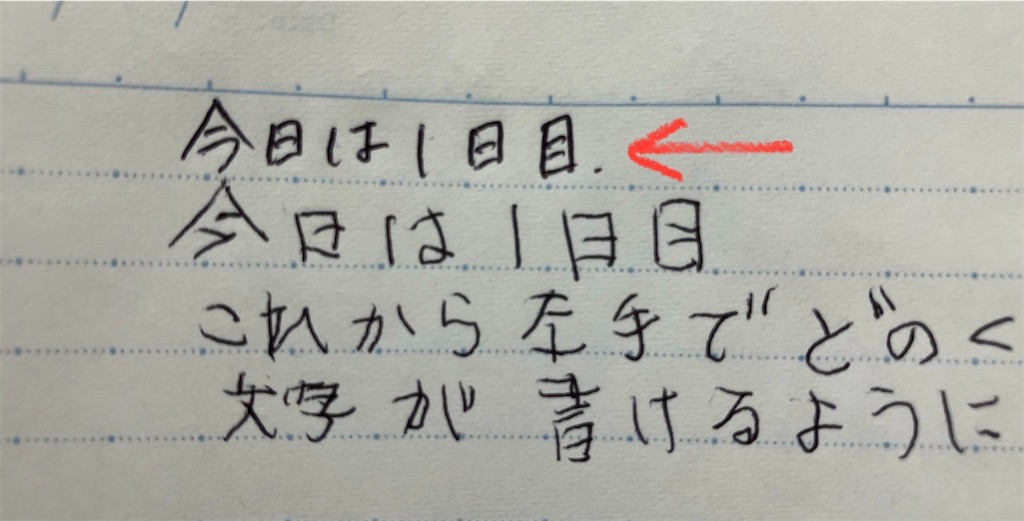 今日は1日目.
今日は1日目
これから左手でどのく
文字が書けるように